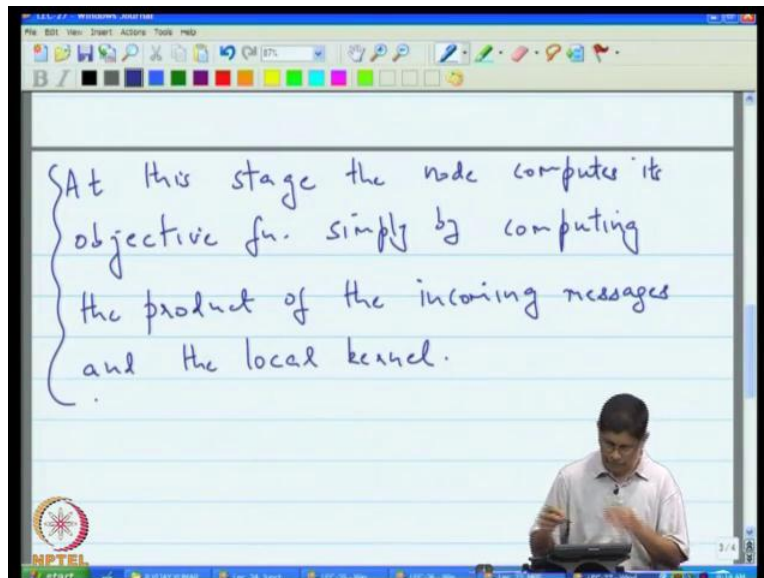 LEC-27 - Windows Journal
File Edit View Insert Actions Tools Help
87%
B I
At this stage the node computes its
objective fn. simply by computing
the product of the incoming messages
and the local kernel.
NPTEL
3/4
start